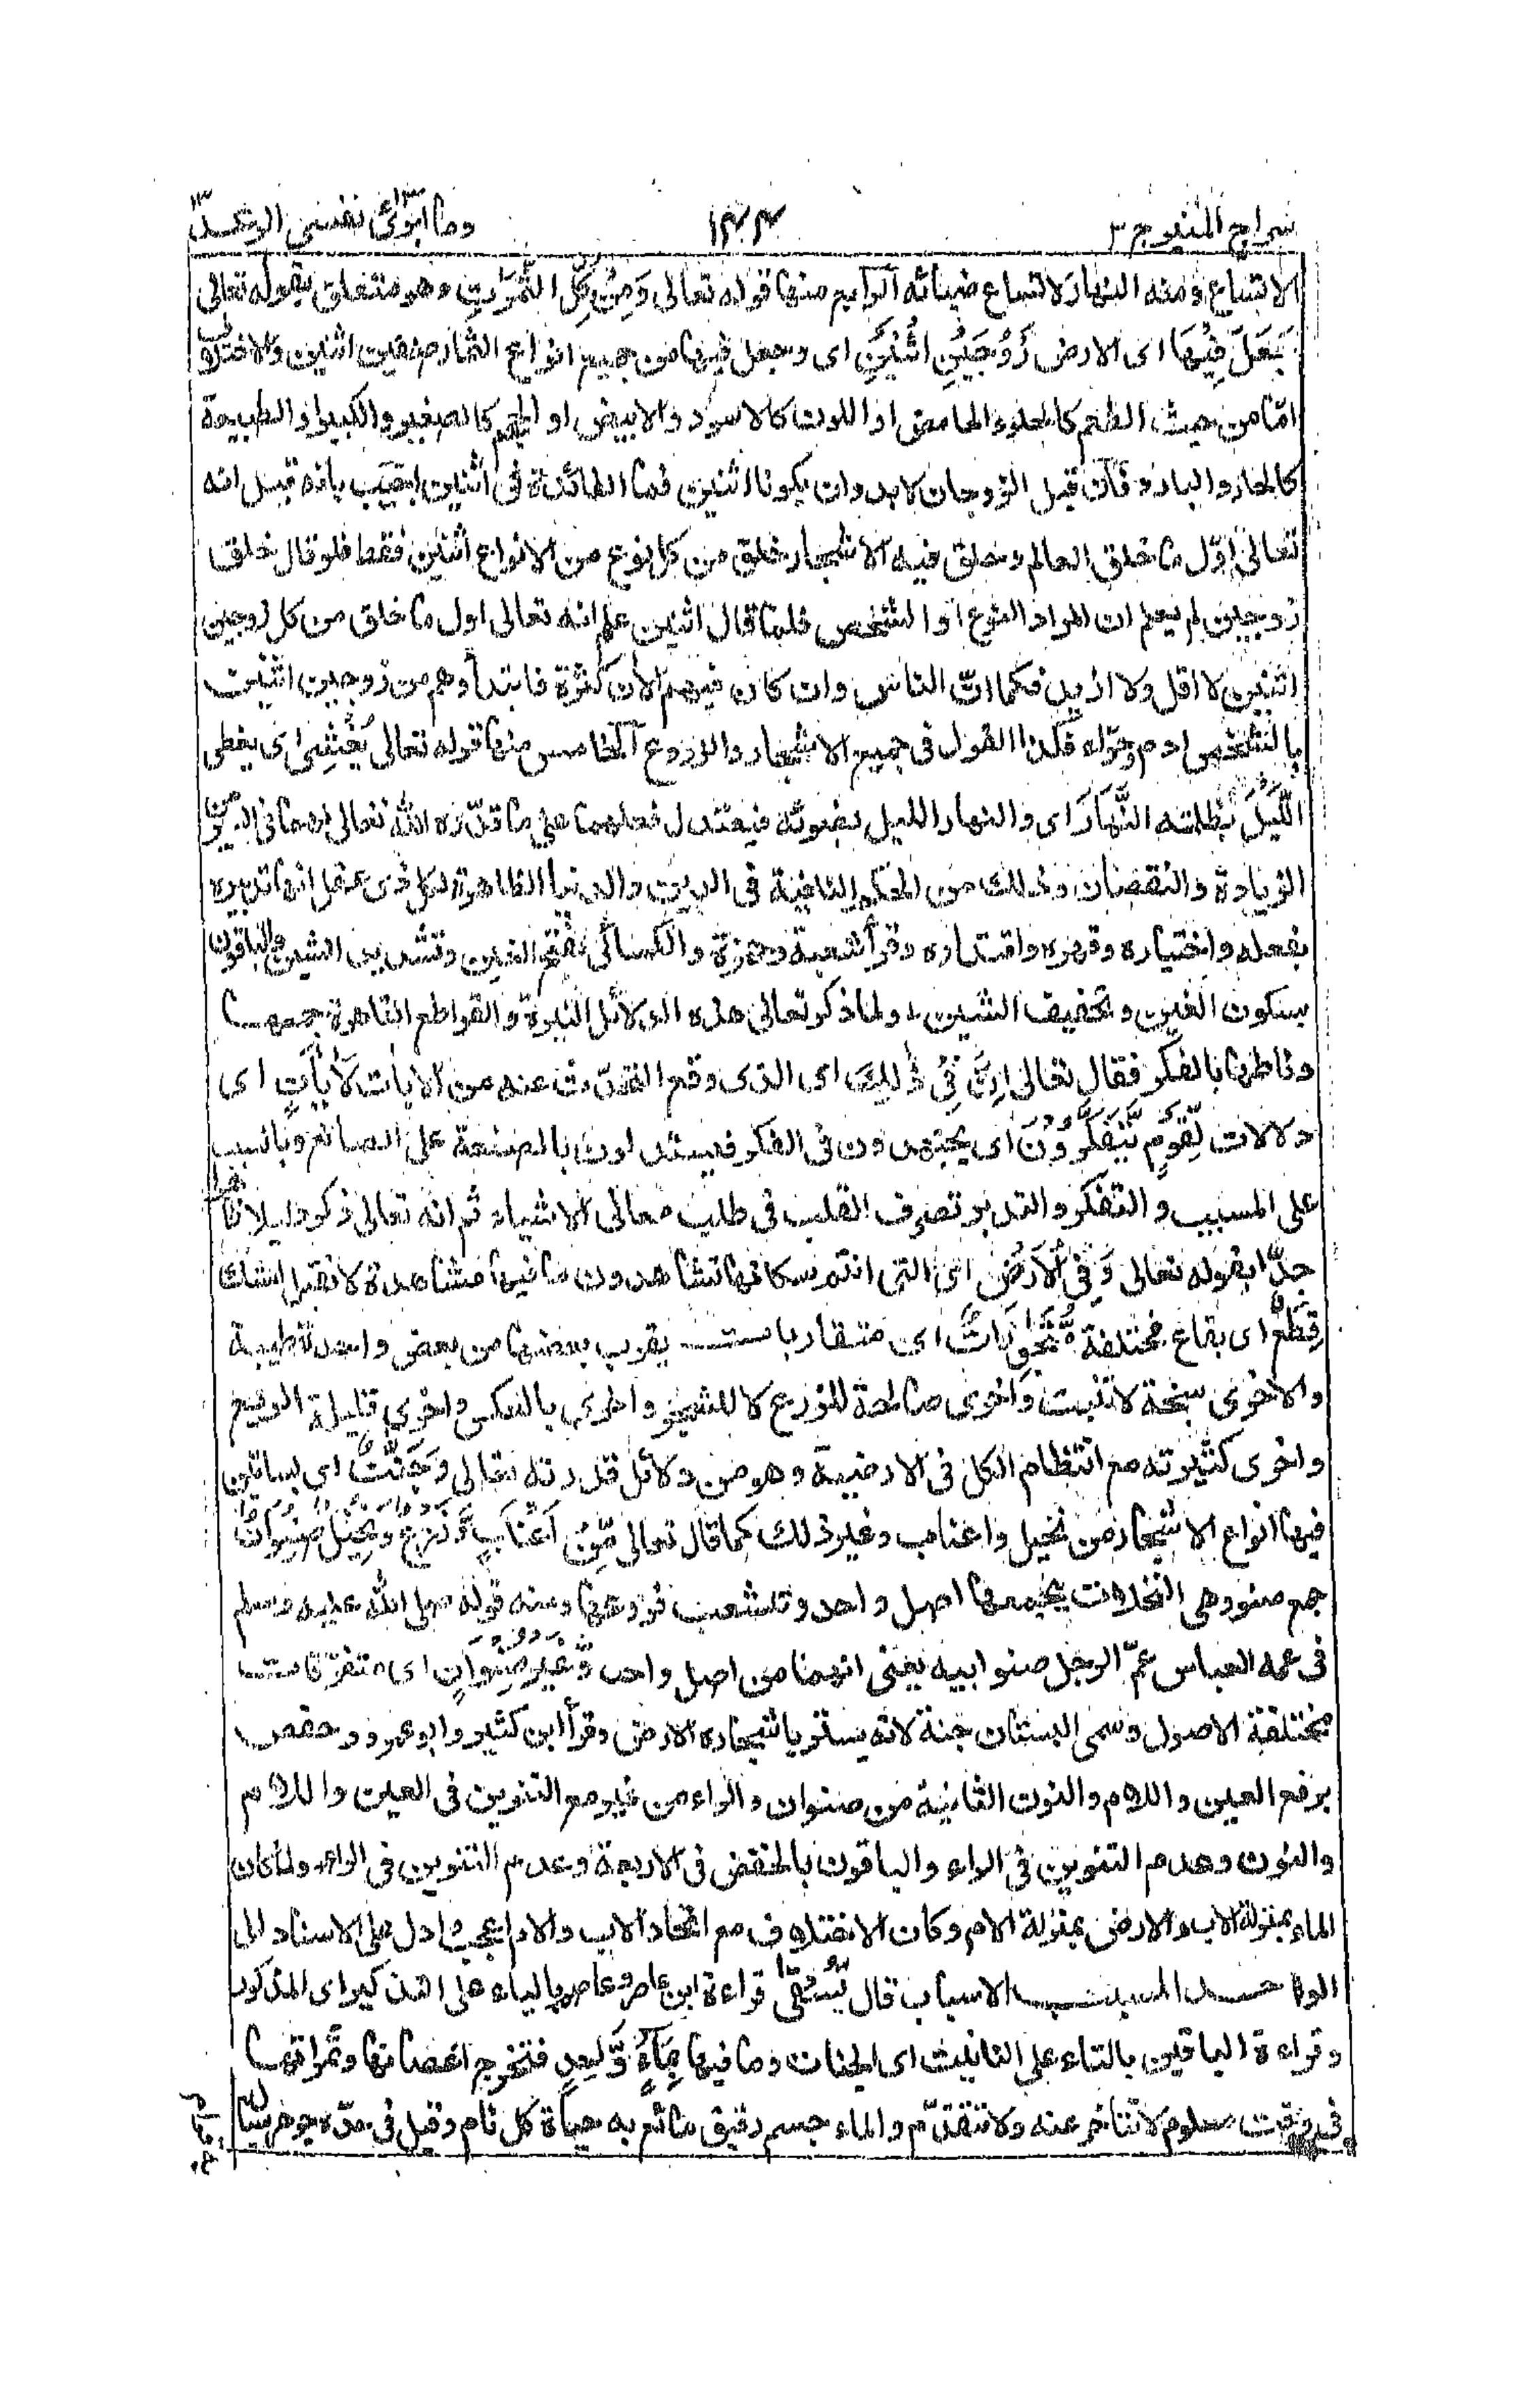 سراج المنير ج ٢ ١٤٤ وما ابرّئ نفسی ١٣ الرعد ١٣
الاتساع ومنه النهار لاتساع ضيائه الرابع منها قوله تعالى وَمِنْ كُلِّ الثَّمَرٰتِ وهو متعلق بقوله تعالى
جَعَلَ فِيْهَا اى الارض زَوْجَيْنِ اثْنَيْنِ اى وجعل فيها من جميع انواع الثمار صنفين اثنين والاختلاف
امّا من حيث الطعم كالحلو والحامض او اللون كالاسود والابيض او الحجم كالصغير والكبير او الطبيعة
كالحار والبارد فآن قيل الزوجان لابد وان يكونا اثنين فما الفائدة فى اثنين اجيب بانه قيل انه
تعالى اوّل ما خلق العالم وخلق فيه الاشجار خلق من كل نوع من الانواع اثنين فقط فلو قال خلق
زوجين لم يعلم ان المراد النوع او الشخص فلما قال اثنين علم انه تعالى اول ما خلق من كل زوجين
اثنين لا اقل ولا ازيد فكما انّ الناس وان كان فيهم الأن كثرة فابتدأوهم من زوجين اثنين
بالشخص ادم وحوّاء فكذا القول فى جميع الاشجار والزروع آلخامس منها قوله تعالى يُغْشِى اى يغطى
اللَّيْلَ بظلمته النَّهَارَ اى والنهار الليل بضوئه فيعتدل فعلهما على ما قدّره الله تعالى لهما فى السير من
الزيادة والنقصان وذلك من الحكم النافعة فى الدين والدنيا الظاهرة لكل ذى عقل انها تدبيره
بفعله واختياره وقهره واقتداره وقرأ شعبة وحمزة والكسائى بفتح الغين وتشديد الشين والباقون
بسكون الغين وتخفيف الشين ولما ذكر تعالى هذه الدلائل النيرة والقواطع القاهرة جمعها
وناطها بالفكر فقال تعالى اِنَّ فِيْ ذٰلِكَ اى الذى وقع التحدّث عنه من الأيات لَاٰيٰتٍ اى
دلالات لِّقَوْمٍ يَّتَفَكَّرُوْنَ اى يجتهدون فى الفكر فيستدلون بالصنعة على الصانع وبالسبب
على المسبب والتفكر والتدبر تصرف القلب فى طلب معانى الاشياء ثم انه تعالى ذكر دليلا ظاهرا
جدّا بقوله تعالى وَفِى الْاَرْضِ اى التى انتم سكانها تشاهدون ما فيها مشاهدة لا تقبل الشك
قِطَعٌ اى بقاع مختلفة مُّتَجٰوِرٰتٌ اى متقاربات يقرب بعضها من بعض واحدة طيبة
والاخرى سبخة لا تنبت واخرى صالحة للزرع لا للشجر واخرى بالعكس واخرى قليلة الريع
واخرى كثيرته مع انتظام الكل فى الارضية وهو من دلائل قدرته تعالى وَّجَنّٰتٌ اى بساتين
فيها انواع الاشجار من نخيل واعناب وغير ذلك كما قال تعالى مِّنْ اَعْنَابٍ وَّزَرْعٌ وَّنَخِيْلٌ صِنْوَانٌ
جمع صنو وهى النخلات يجمعها اصل واحد وتتشعب فروعها ومنه قوله صلى الله عليه وسلم
فى عمه العباس عمّ الرجل صنو ابيه يعنى انهما من اصل واحد وَّغَيْرُ صِنْوَانٍ اى متفرّقات
مختلفة الاصول وسمى البستان جنة لانه يستر باشجاره الارض وقرأ ابن كثير وابو عمرو وحفص
برفع العين واللام والنون الثانية من صنوان والراء من غير مع التنوين فى العين واللام
والنون وعدم التنوين فى الراء والباقون بالخفض فى الاربعة وعدم التنوين فى الراء ولما كان
الماء بمنزلة الاب والارض بمنزلة الام وكان الاختلاف مع اتحاد الاب والام اعجب وادل على الاسناد الى
الواحد المسبب الاسباب قال يُّسْقٰى قراءة ابن عامر وعاصم بالياء على التذكير اى المذكور
وقراءة الباقين بالتاء على التانيث اى الجنات وما فيها بِمَآءٍ وَّاحِدٍ فتخرج اغصانها وثمراتها
فى وقت معلوم لا تتاخر عنه ولا تتقدّم والماء جسم رقيق مائع به حياة كل نام وقيل فى حدّه جوهر سيال